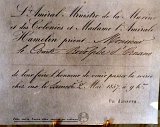 L'Amiral Ministre de la Marine
et des Colonies et Madame l'Amirale
Hamelin prient Monsieur
le Comte
de leur faire l'honneur de venir passer la soirée
chez eux le Samedi 2 Mai 1857, à 9 h